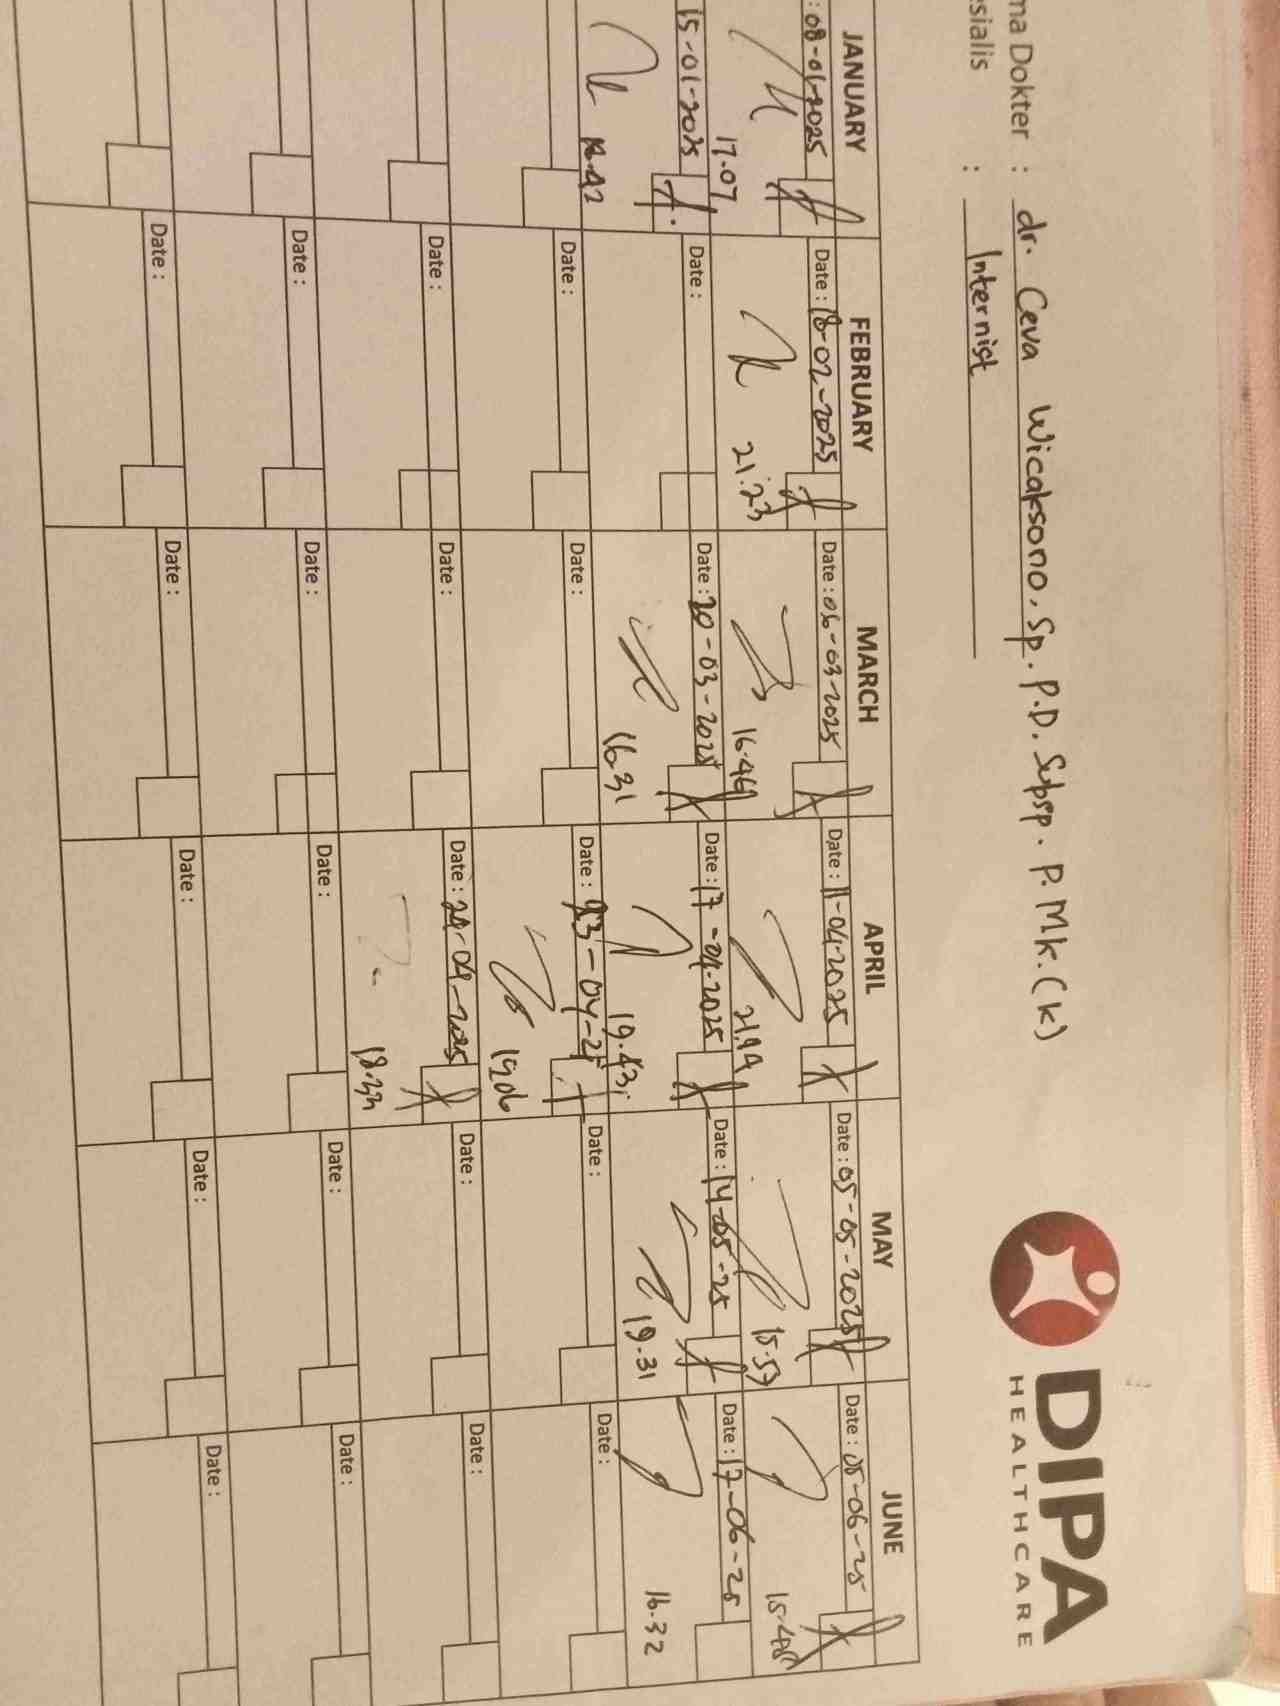 DIPA
HEALTHCARE
ma Dokter : dr. Ceva Wicaksono. Sp. P.D. Subsp. P. Mk. (K)
esialis : Internist
JANUARY FEBRUARY MARCH APRIL MAY JUNE
: 08-01-2025 Date : 18-02-2025 Date : 06-03-2025 Date : 11-04-2025 Date : 05-05-2025 Date : 05-06-25
17.07 21.23 16.46 21.14 15.59 15.48
15-01-2025 Date : Date : 20-03-2025 Date : 17-04-2025 Date : 14-05-25 Date : 17-06-25
16.31 19.43 19.31 16.32
Date : Date : Date : 23-04-25 Date : Date :
19.06
Date : Date : Date : 29-04-2025 Date : Date :
18.33
Date : Date : Date : Date : Date :
Date : Date : Date : Date : Date :